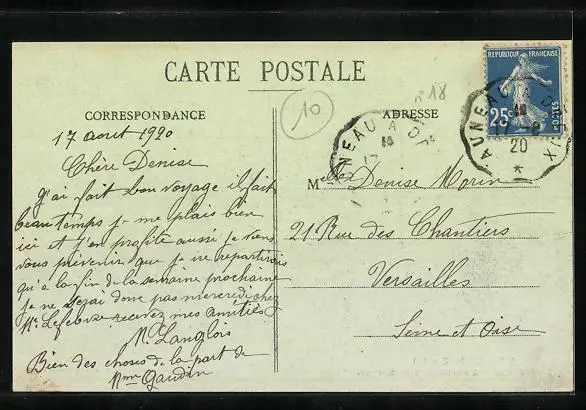 CARTE POSTALE
n° 18
10
CORRESPONDANCE
17 aout 1920
Chère Denise
J'ai fait bon voyage il fait
beau temps je me plais bien
ici et j'en profite aussi je viens
vous prévenir que je ne repartirais
qu'a la fin de la semaine prochaine
je ne serai donc pas mercredi chez
Me Lefebvre recevez mes amitiés
M. Langlois
Bien des choses de la part de
Mme Gaudin
ADRESSE
Melle Denise Morin
21 Rue des Chantiers
Versailles
Seine et Oise
REPUBLIQUE FRANÇAISE
25c
POSTES
AUNEAU A DREUX
17-8
20
*
NEAU A DR